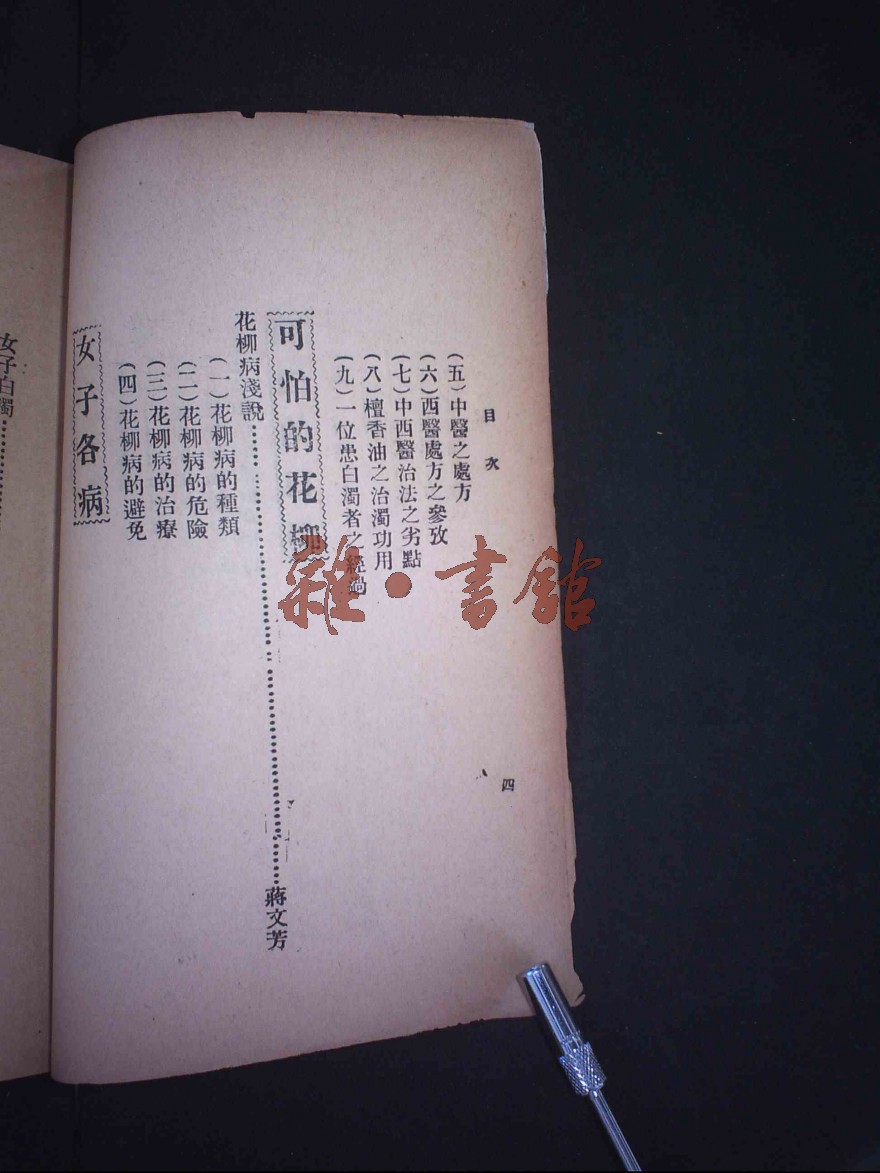 目次
四
(五)中醫之處方
(六)西醫處方之參攷
(七)中西醫治法之劣點
(八)檀香油之治濁功用
(九)一位患白濁者之經過
可怕的花柳
花柳病淺說……………………蔣文芳
(一)花柳病的種類
(二)花柳病的危險
(三)花柳病的治療
(四)花柳病的避免
女子各病
女子白濁……
雜·書館